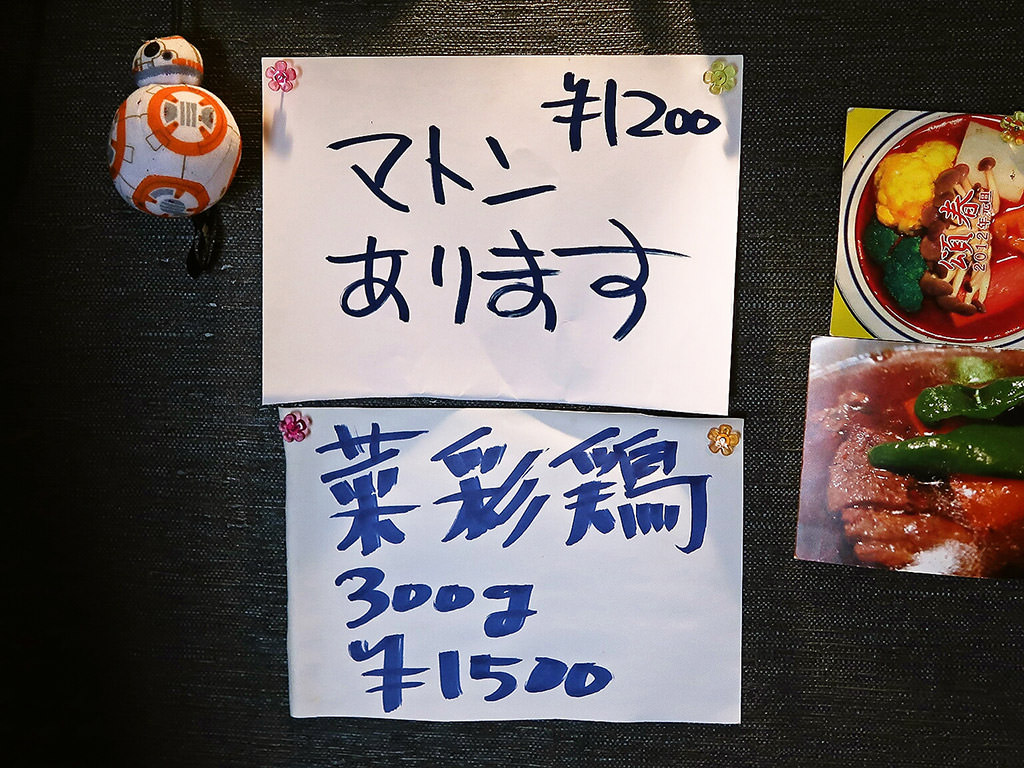 ¥1200
マトン
あります
菜彩鶏
300g
¥1500
頌春
2012年元旦